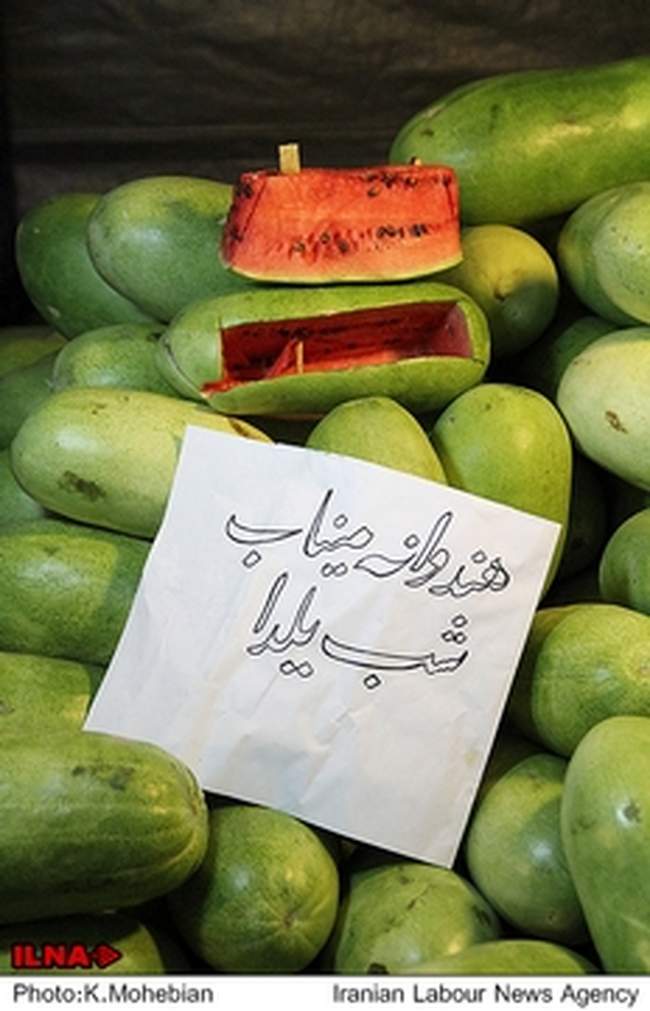 هندوانه میناب
شب یلدا
ILNA
Photo:K.Mohebian
Iranian Labour News Agency